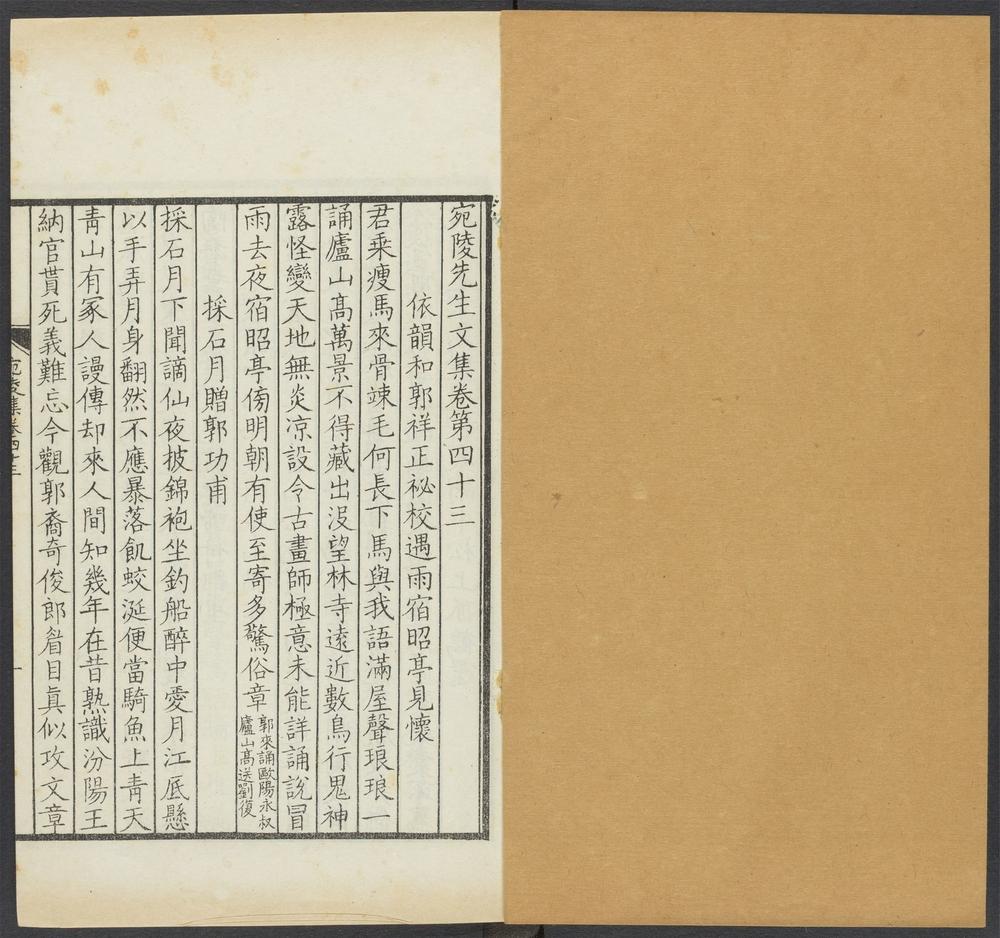 宛陵先生文集卷第四十三
依韻和郭祥正祕校遇雨宿昭亭見懷
君乘瘦馬來骨竦毛何長下馬與我語滿屋聲琅琅一
誦廬山髙萬景不得藏出沒望林寺遠近數鳥行鬼神
露怪變天地無炎凉設令古畫師極意未能詳誦說冒
雨去夜宿昭亭傍明朝有使至寄多驚俗章郭來誦歐陽永叔
廬山髙送劉復
採石月贈郭功甫
採石月下聞謫仙夜披錦袍坐釣船醉中愛月江底懸
以手弄月身翻然不應暴落飢蛟涎便當騎魚上青天
青山有冢人謾傳却來人間知幾年在昔熟識汾陽王
納官貰死義難忘今觀郭裔奇俊郎眉目真似攻文章
宛陵集卷四十三
一